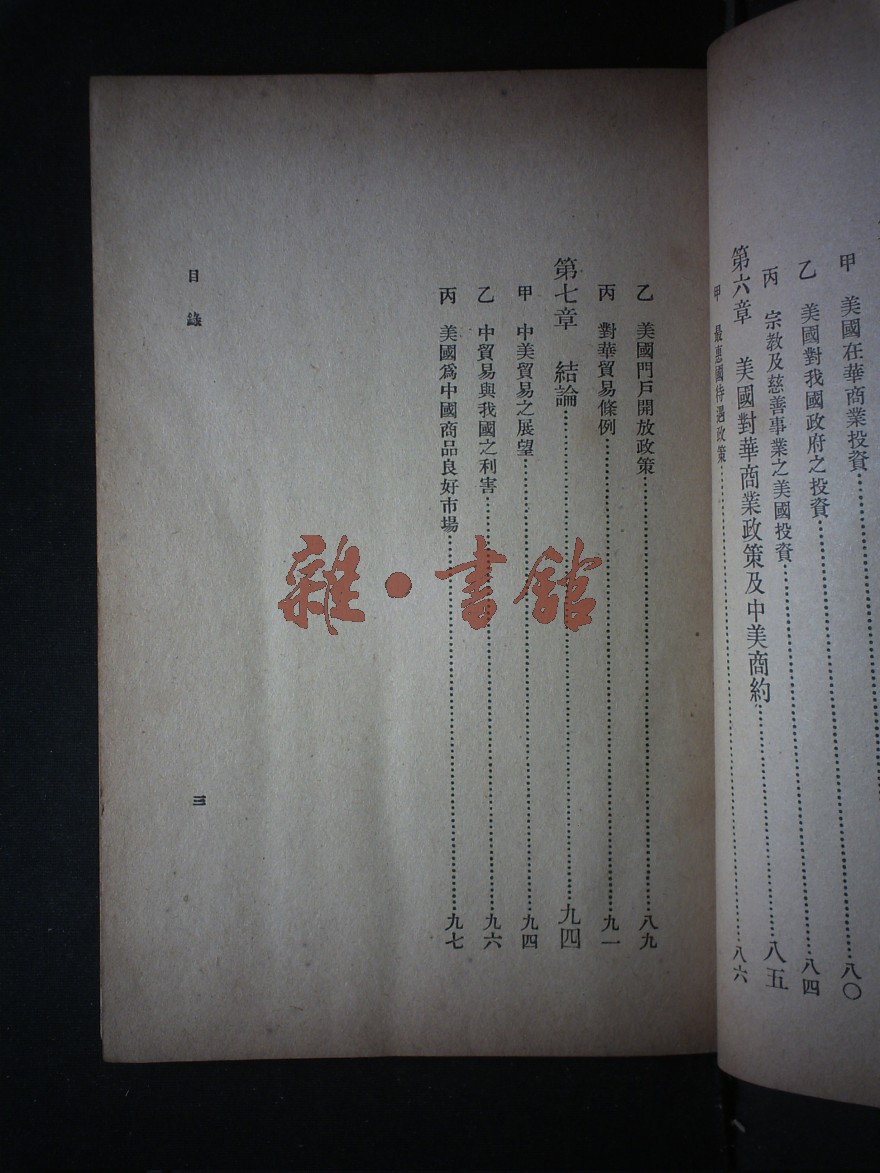 甲 美國在華商業投資………
乙 美國對我國政府之投資………八〇
丙 宗教及慈善事業之美國投資………八四
第六章 美國對華商業政策及中美商約………八五
甲 最惠國待遇政策………八六
乙 美國門戶開放政策………八九
丙 對華貿易條例………九一
第七章 結論………九四
甲 中美貿易之展望………九四
乙 中貿易與我國之利害………九六
丙 美國爲中國商品良好市場………九七
目錄
三
雜·書館